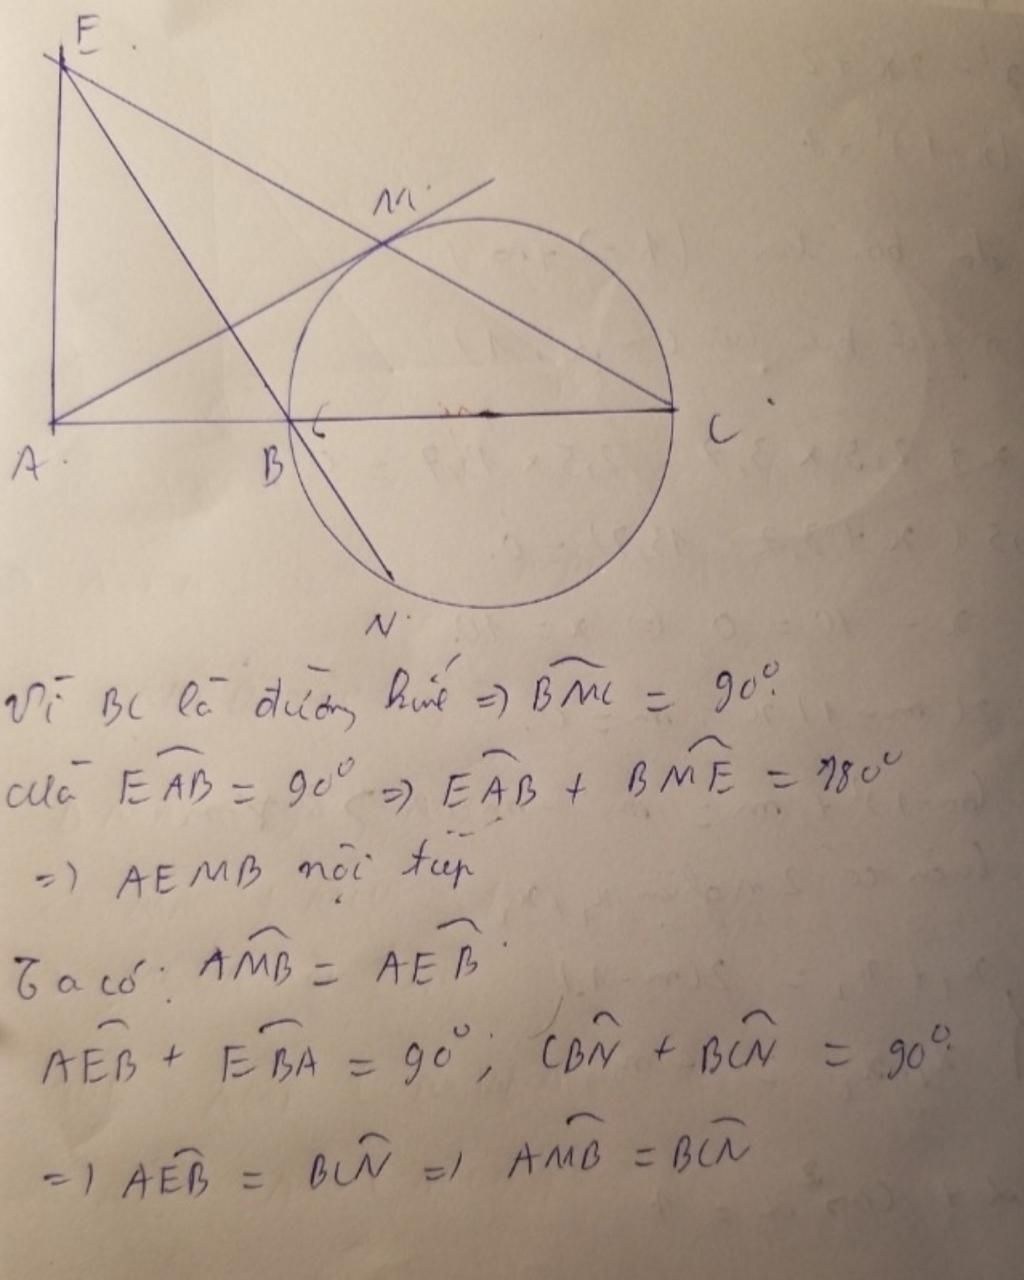 E
M
A
B
C
N
Vì BC là đường kính => BMC = 90°
Mà EAB = 90° => EAB + BME = 180°
=> AEMB nội tiếp
Ta có: AMB = AEB
AEB + EBA = 90°; CBN + BCN = 90°
=> AEB = BCN => AMB = BCN